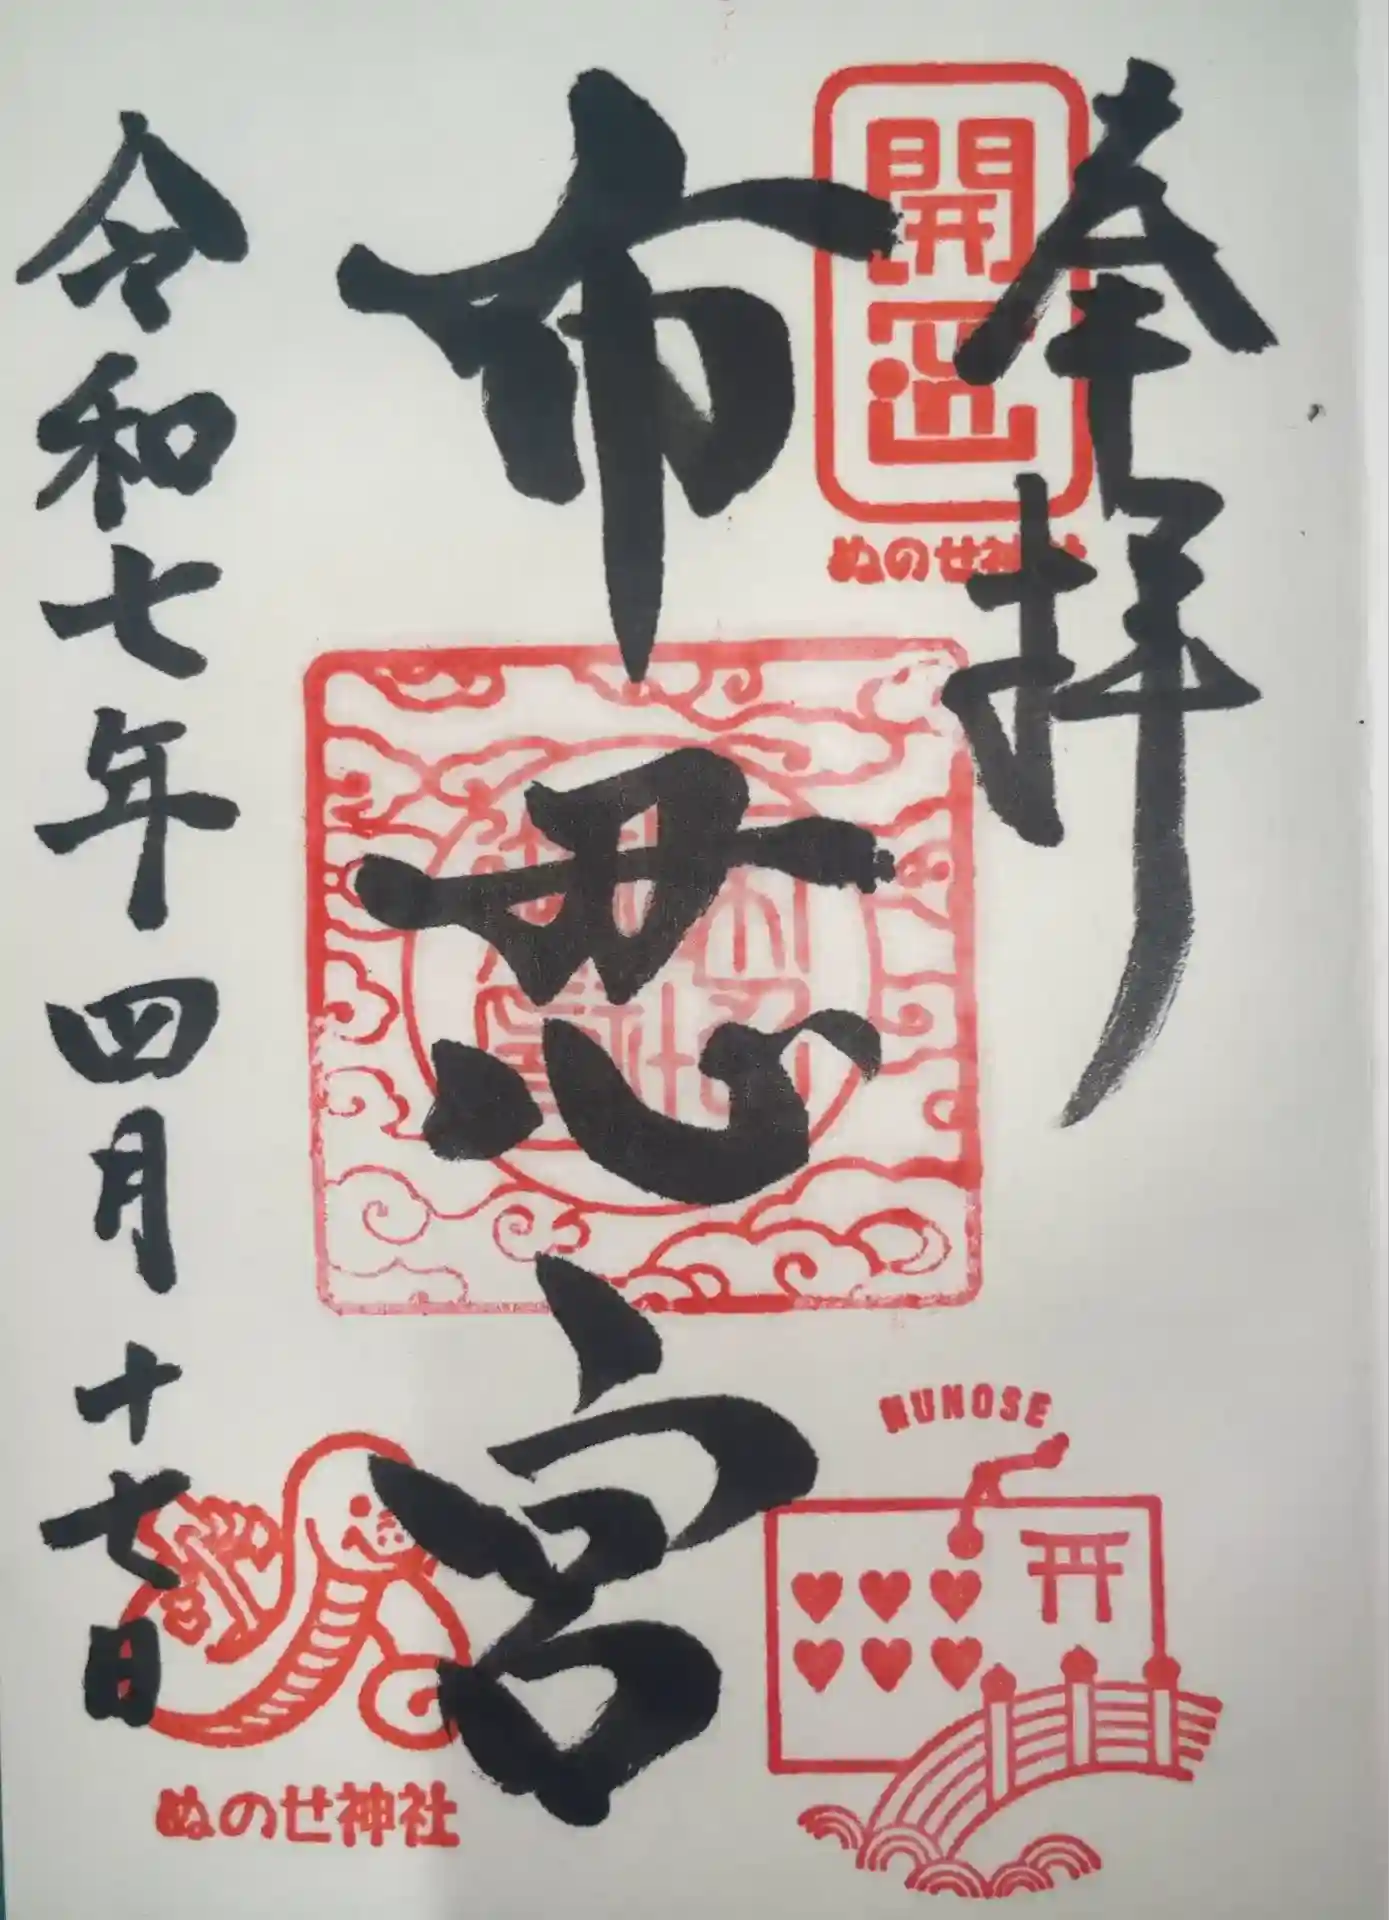 奉拝
開運
ぬのせ神社
布忍宮
令和七年四月十七日
NUNOSE
ぬのせ神社